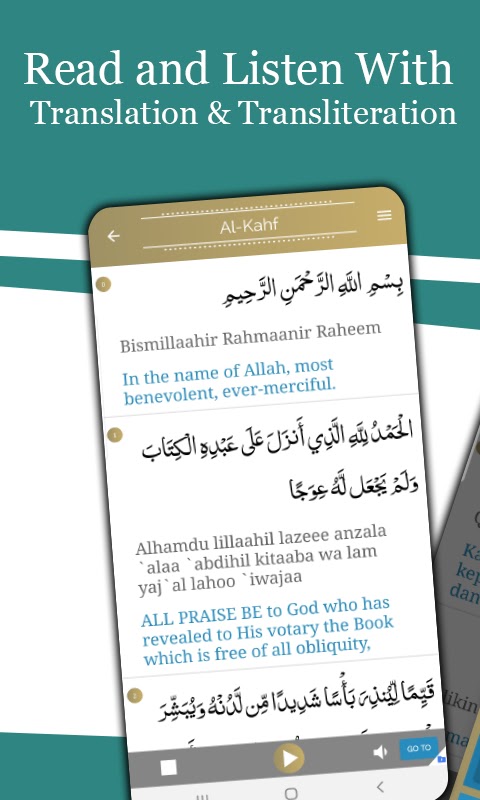 Read and Listen With
Translation & Transliteration
Al-Kahf
0
بِسْمِ اللَّهِ الرَّحْمَنِ الرَّحِيمِ
Bismillaahir Rahmaanir Raheem
In the name of Allah, most
benevolent, ever-merciful.
1
الْحَمْدُ لِلَّهِ الَّذِي أَنزَلَ عَلَى عَبْدِهِ الْكِتَابَ
وَلَمْ يَجْعَل لَّهُ عِوَجًا
Alhamdu lillaahil lazeee anzala
`alaa `abdihil kitaaba wa lam
yaj`al lahoo `iwajaa
ALL PRAISE BE to God who has
revealed to His votary the Book
which is free of all obliquity,
2
قَيِّمًا لِّيُنذِرَ بَأْسًا شَدِيدًا مِّن لَّدُنْهُ وَيُبَشِّرَ
GO TO
Ka
kep
dan